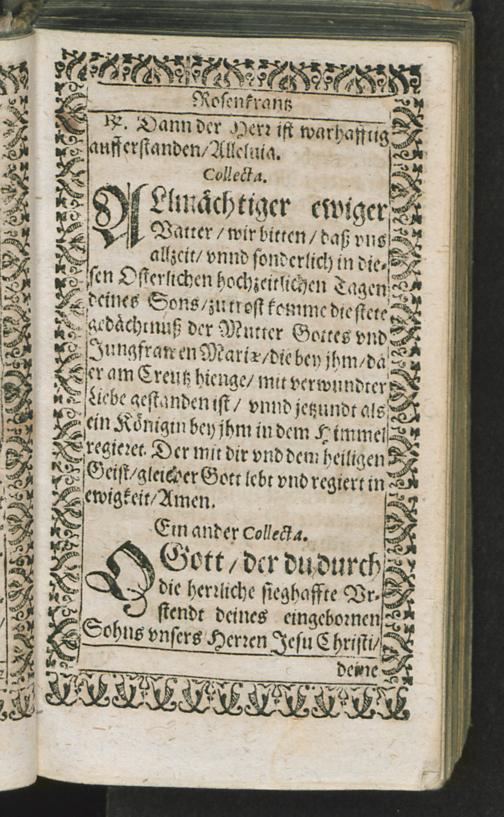 Rosenkrantz
℟. Dann der Herr ist warhafftig
aufferstanden/Alleluia.
Collecta.
ALlmächtiger ewiger
Vatter / wir bitten / daß vns
allzeit/ vnnd sonderlich in die-
sen Osterlichen hochzeitlichen Tagen
deines Sons/zu trost komme die stete
gedächtnuß der Mutter Gottes vnd
Jungfrawen Mariæ/die bey jhm/da
er am Creutz hienge/ mit verwundter
Liebe gestanden ist / vnnd jetzundt als
ein Königin bey jhm in dem Himmel
regieret. Der mit dir vnd dem heiligen
Geist/gleicher Gott lebt vnd regiert in
ewigkeit/Amen.
Ein ander Collecta.
O Gott / der du durch
die herrliche sieghaffte Vr-
stendt deines eingebornen
Sohns vnsers Herren Jesu Christi/
deine